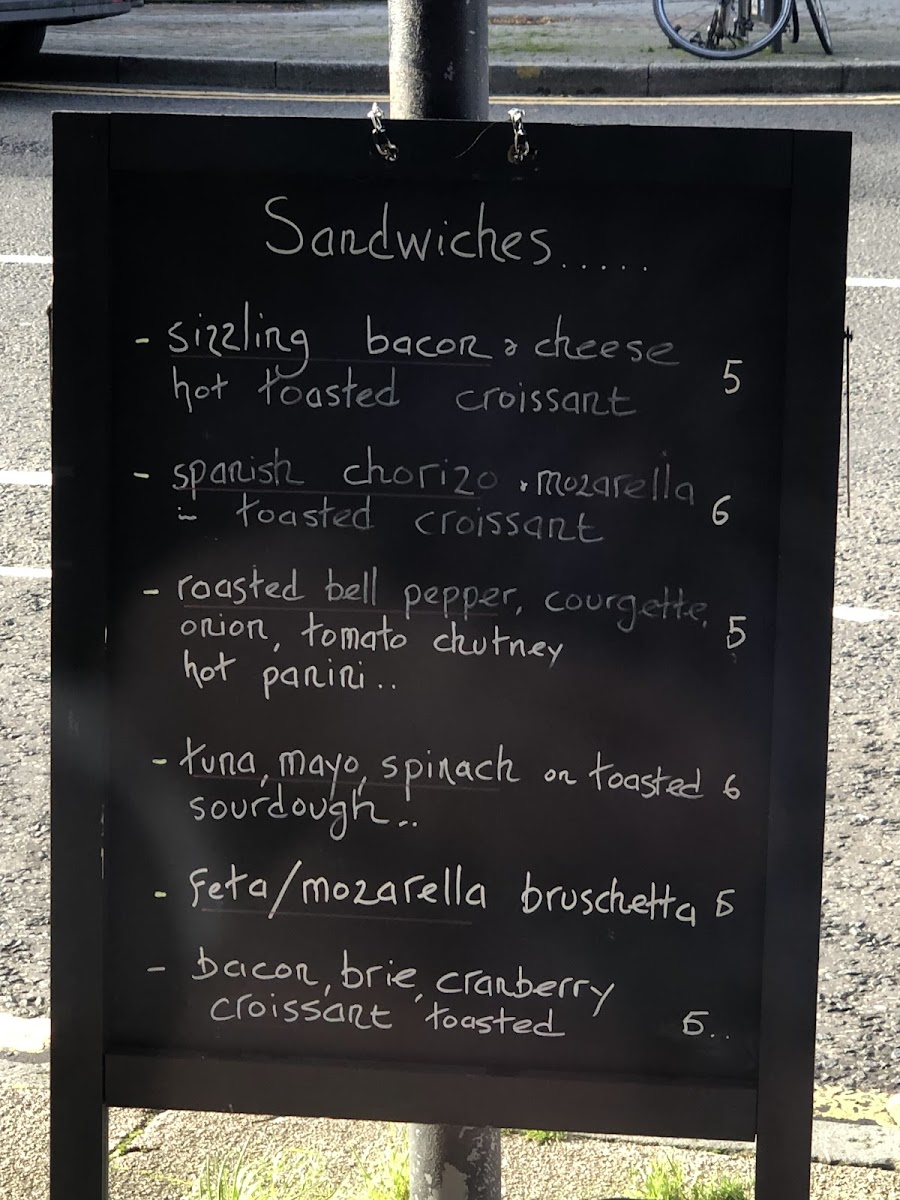 Sandwiches.....
- sizzling bacon & cheese
hot toasted croissant 5
- spanish chorizo & mozarella
in toasted croissant 6
- roasted bell pepper, courgette,
onion, tomato chutney 5
hot panini..
- tuna, mayo, spinach on toasted 6
sourdough..
- feta/mozarella bruschetta 5
- bacon, brie, cranberry
croissant toasted 5..